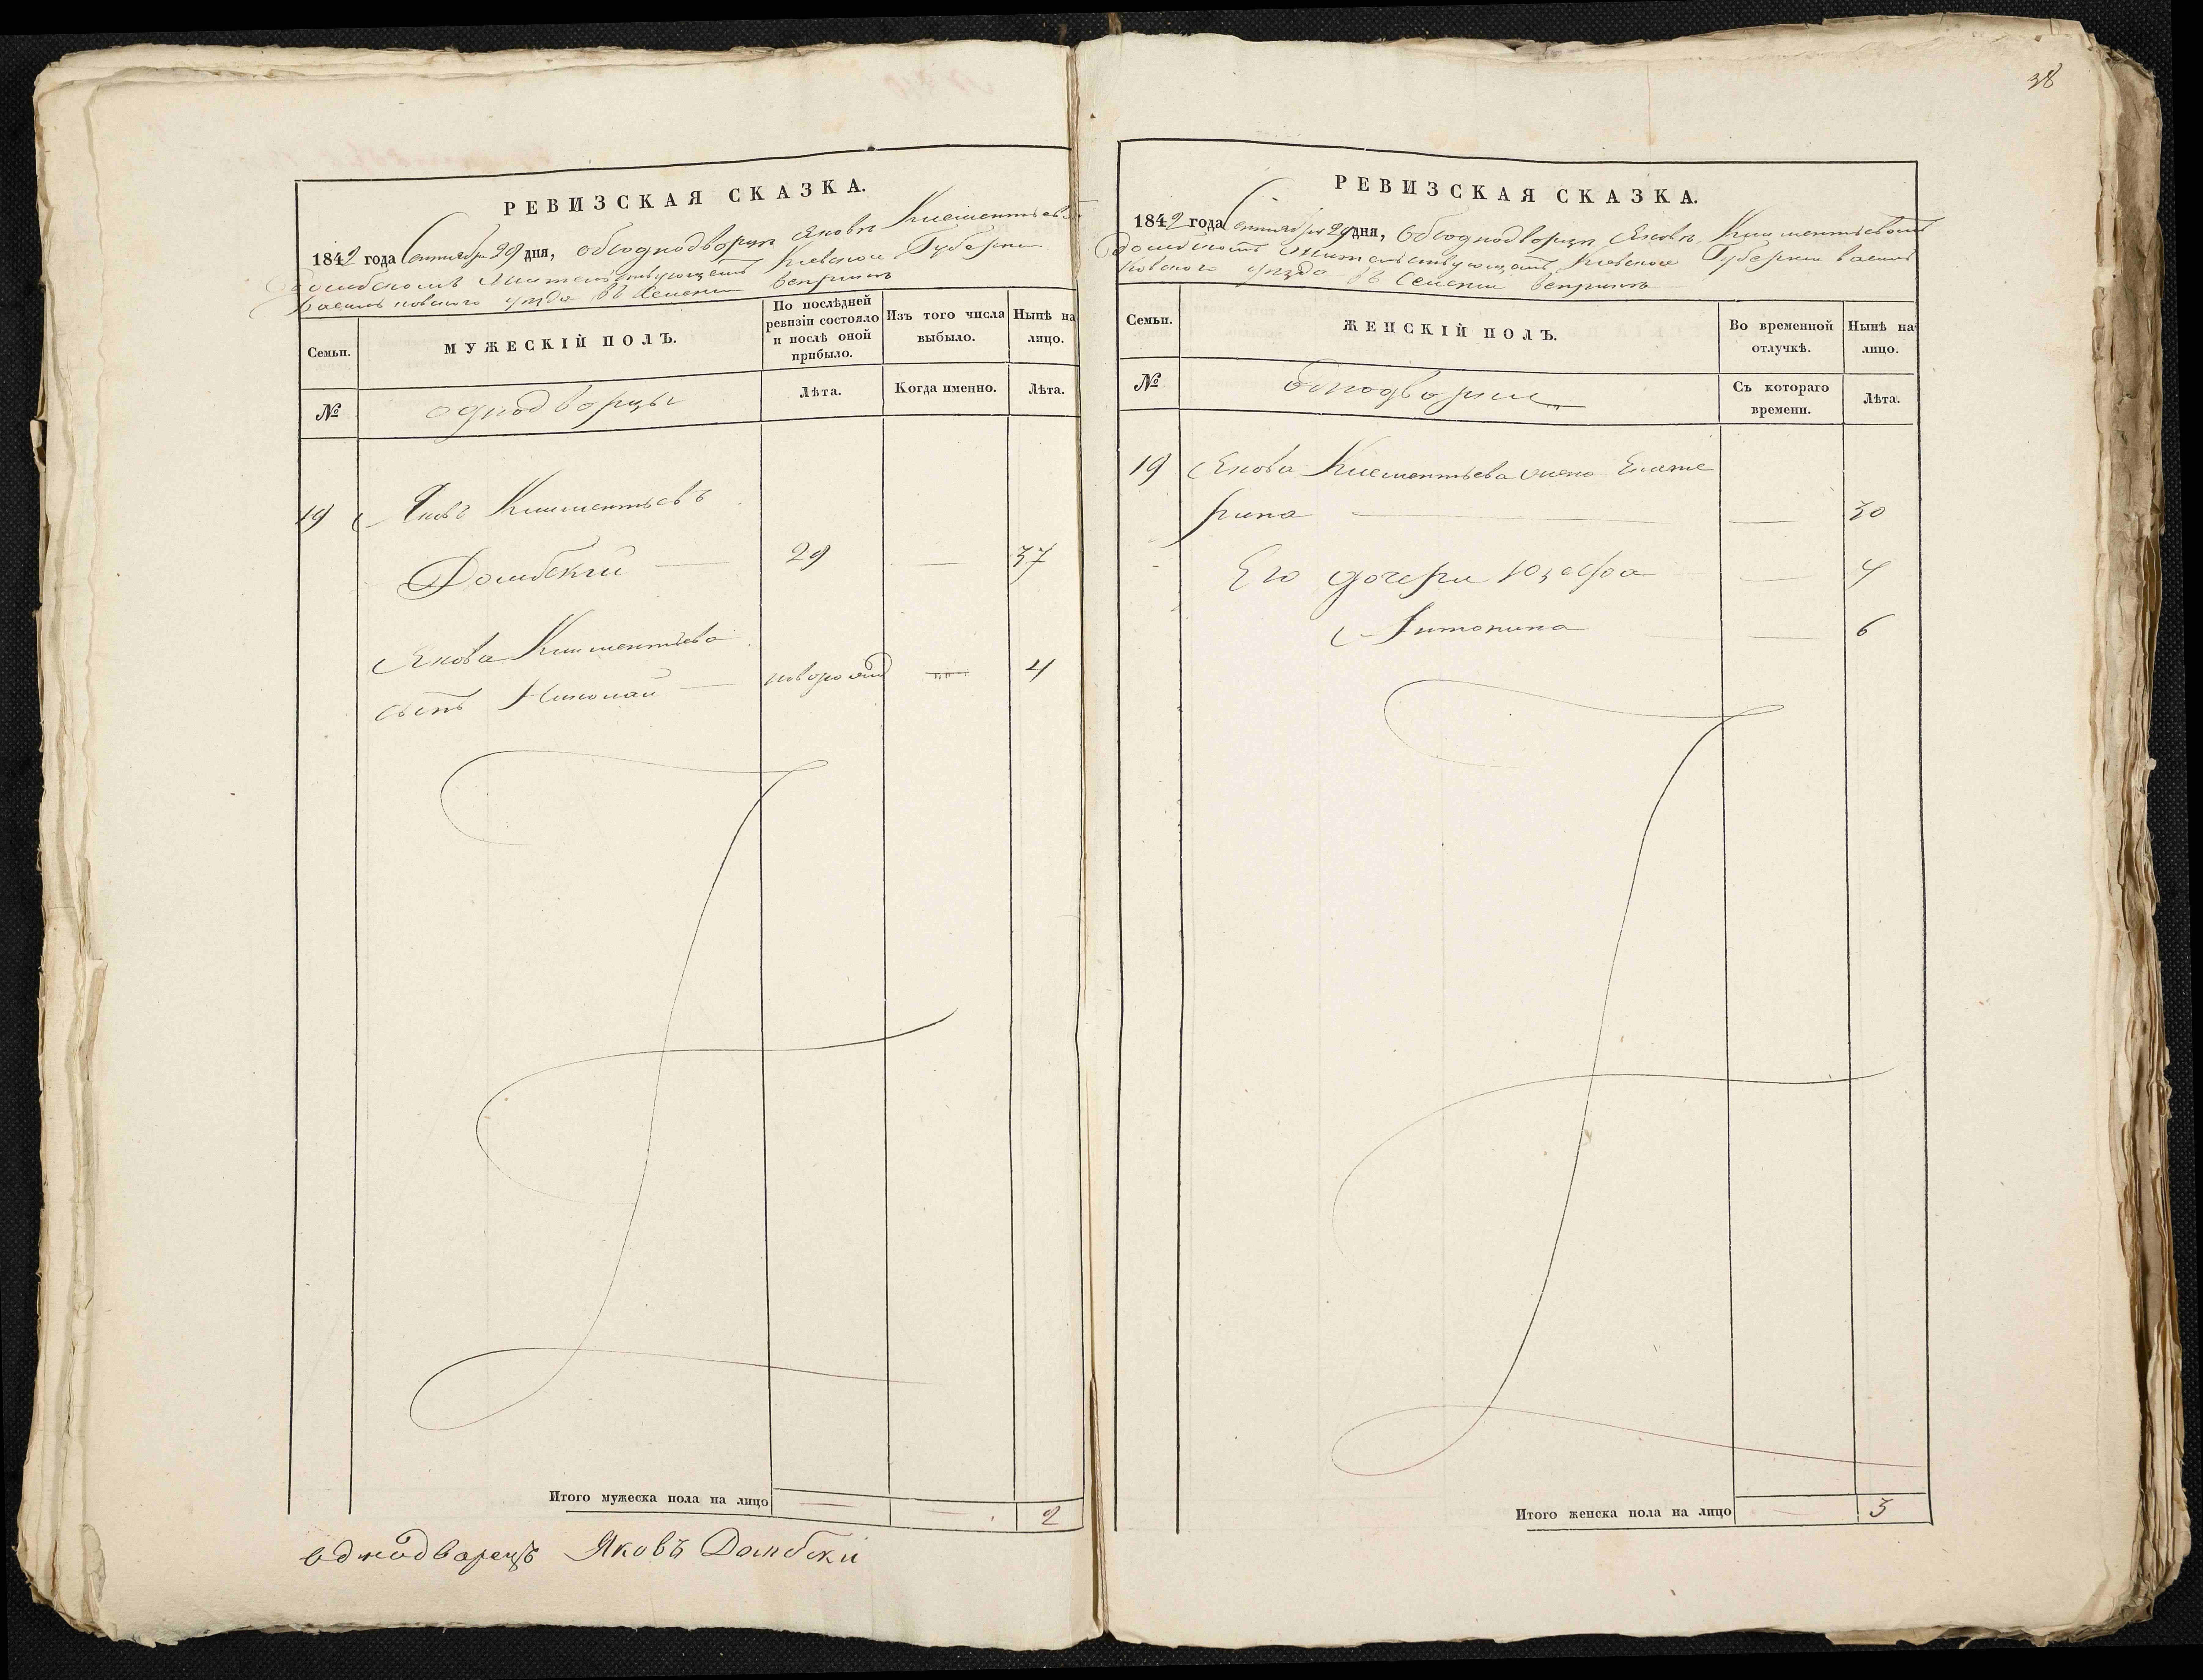 РЕВИЗСКАЯ СКАЗКА.
1842 года Сентября 29 дня, объ однодворцѣ Яковѣ Климентьевѣ
Домбскомъ Жительствующемъ Кіевской Губерніи
Васильковскаго уѣзда въ Селеніи Веприкъ
Семьи.
МУЖЕСКІЙ ПОЛЪ.
По послѣдней ревизіи состояло и послѣ оной прибыло.
Изъ того числа выбыло.
Нынѣ на лицо.
№
однодворцы
Лѣта.
Когда именно.
Лѣта.
19 Яковъ Климентьевъ
Домбскій — 29 — 37
Якова Климентьева
сынъ Николай — новорожд — 4
Итого мужеска пола на лицо — — 2
однодворецъ Яковъ Домбски
38
РЕВИЗСКАЯ СКАЗКА.
1842 года Сентября 29 дня, Объ однодворцѣ Яковѣ Климентьевомъ
Домбскомъ Жительствующемъ Кіевской Губерніи Василь
ковскаго уѣзда въ Селеніи Веприкъ
Семьи.
ЖЕНСКІЙ ПОЛЪ.
Во временной отлучкѣ.
Нынѣ на лицо.
№
Съ котораго времени.
Лѣта.
19 Якова Климентьева жена Екате
рина — — 30
Его дочери Юзефа — 4
Антонина — 6
Итого женска пола на лицо — 3